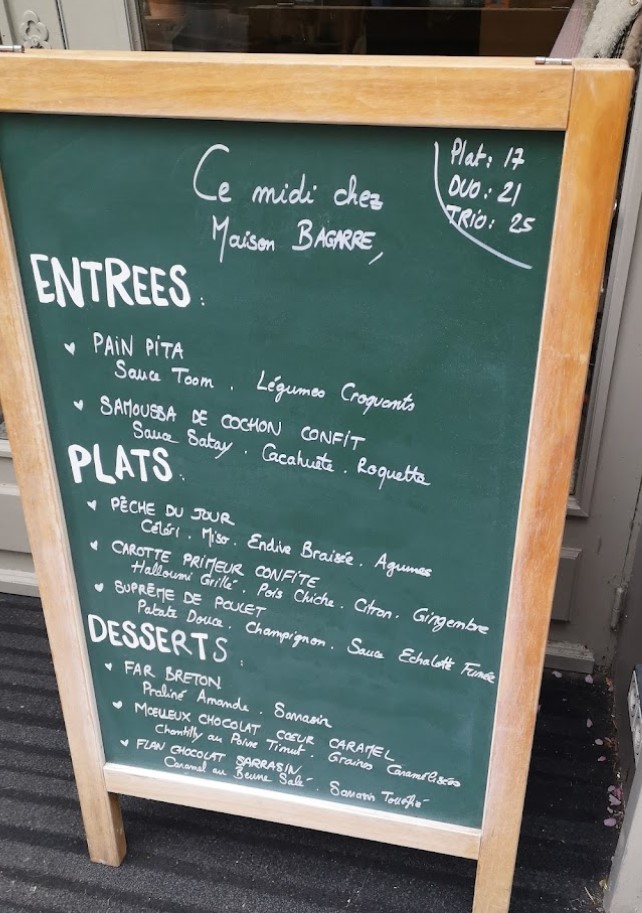 Ce midi chez
Maison BAGARRE,
Plat: 17
DUO: 21
TRIO: 25
ENTREES:
PAIN PITA
Sauce Toom. Légumes Croquants
SAMOUSSA DE COCHON CONFIT
Sauce Satay. Cacahuète. Roquette
PLATS:
PÊCHE DU JOUR
Céléri. Miso. Endive Braisée. Agumes
CAROTTE PRIMEUR CONFITE
Halloumi Grillé. Pois Chiche. Citron. Gingembre
SUPRÊME DE POULET
Patate Douce. Champignon. Sauce Echalotte Fumée
DESSERTS:
FAR BRETON
Praliné Amande. Sarrasin
MOELLEUX CHOCOLAT COEUR CARAMEL
Chantilly au Poivre Timut. Graines Caramélisées
FLAN CHOCOLAT SARRASIN
Caramel au Beurre Salé. Sarrasin Torréfié